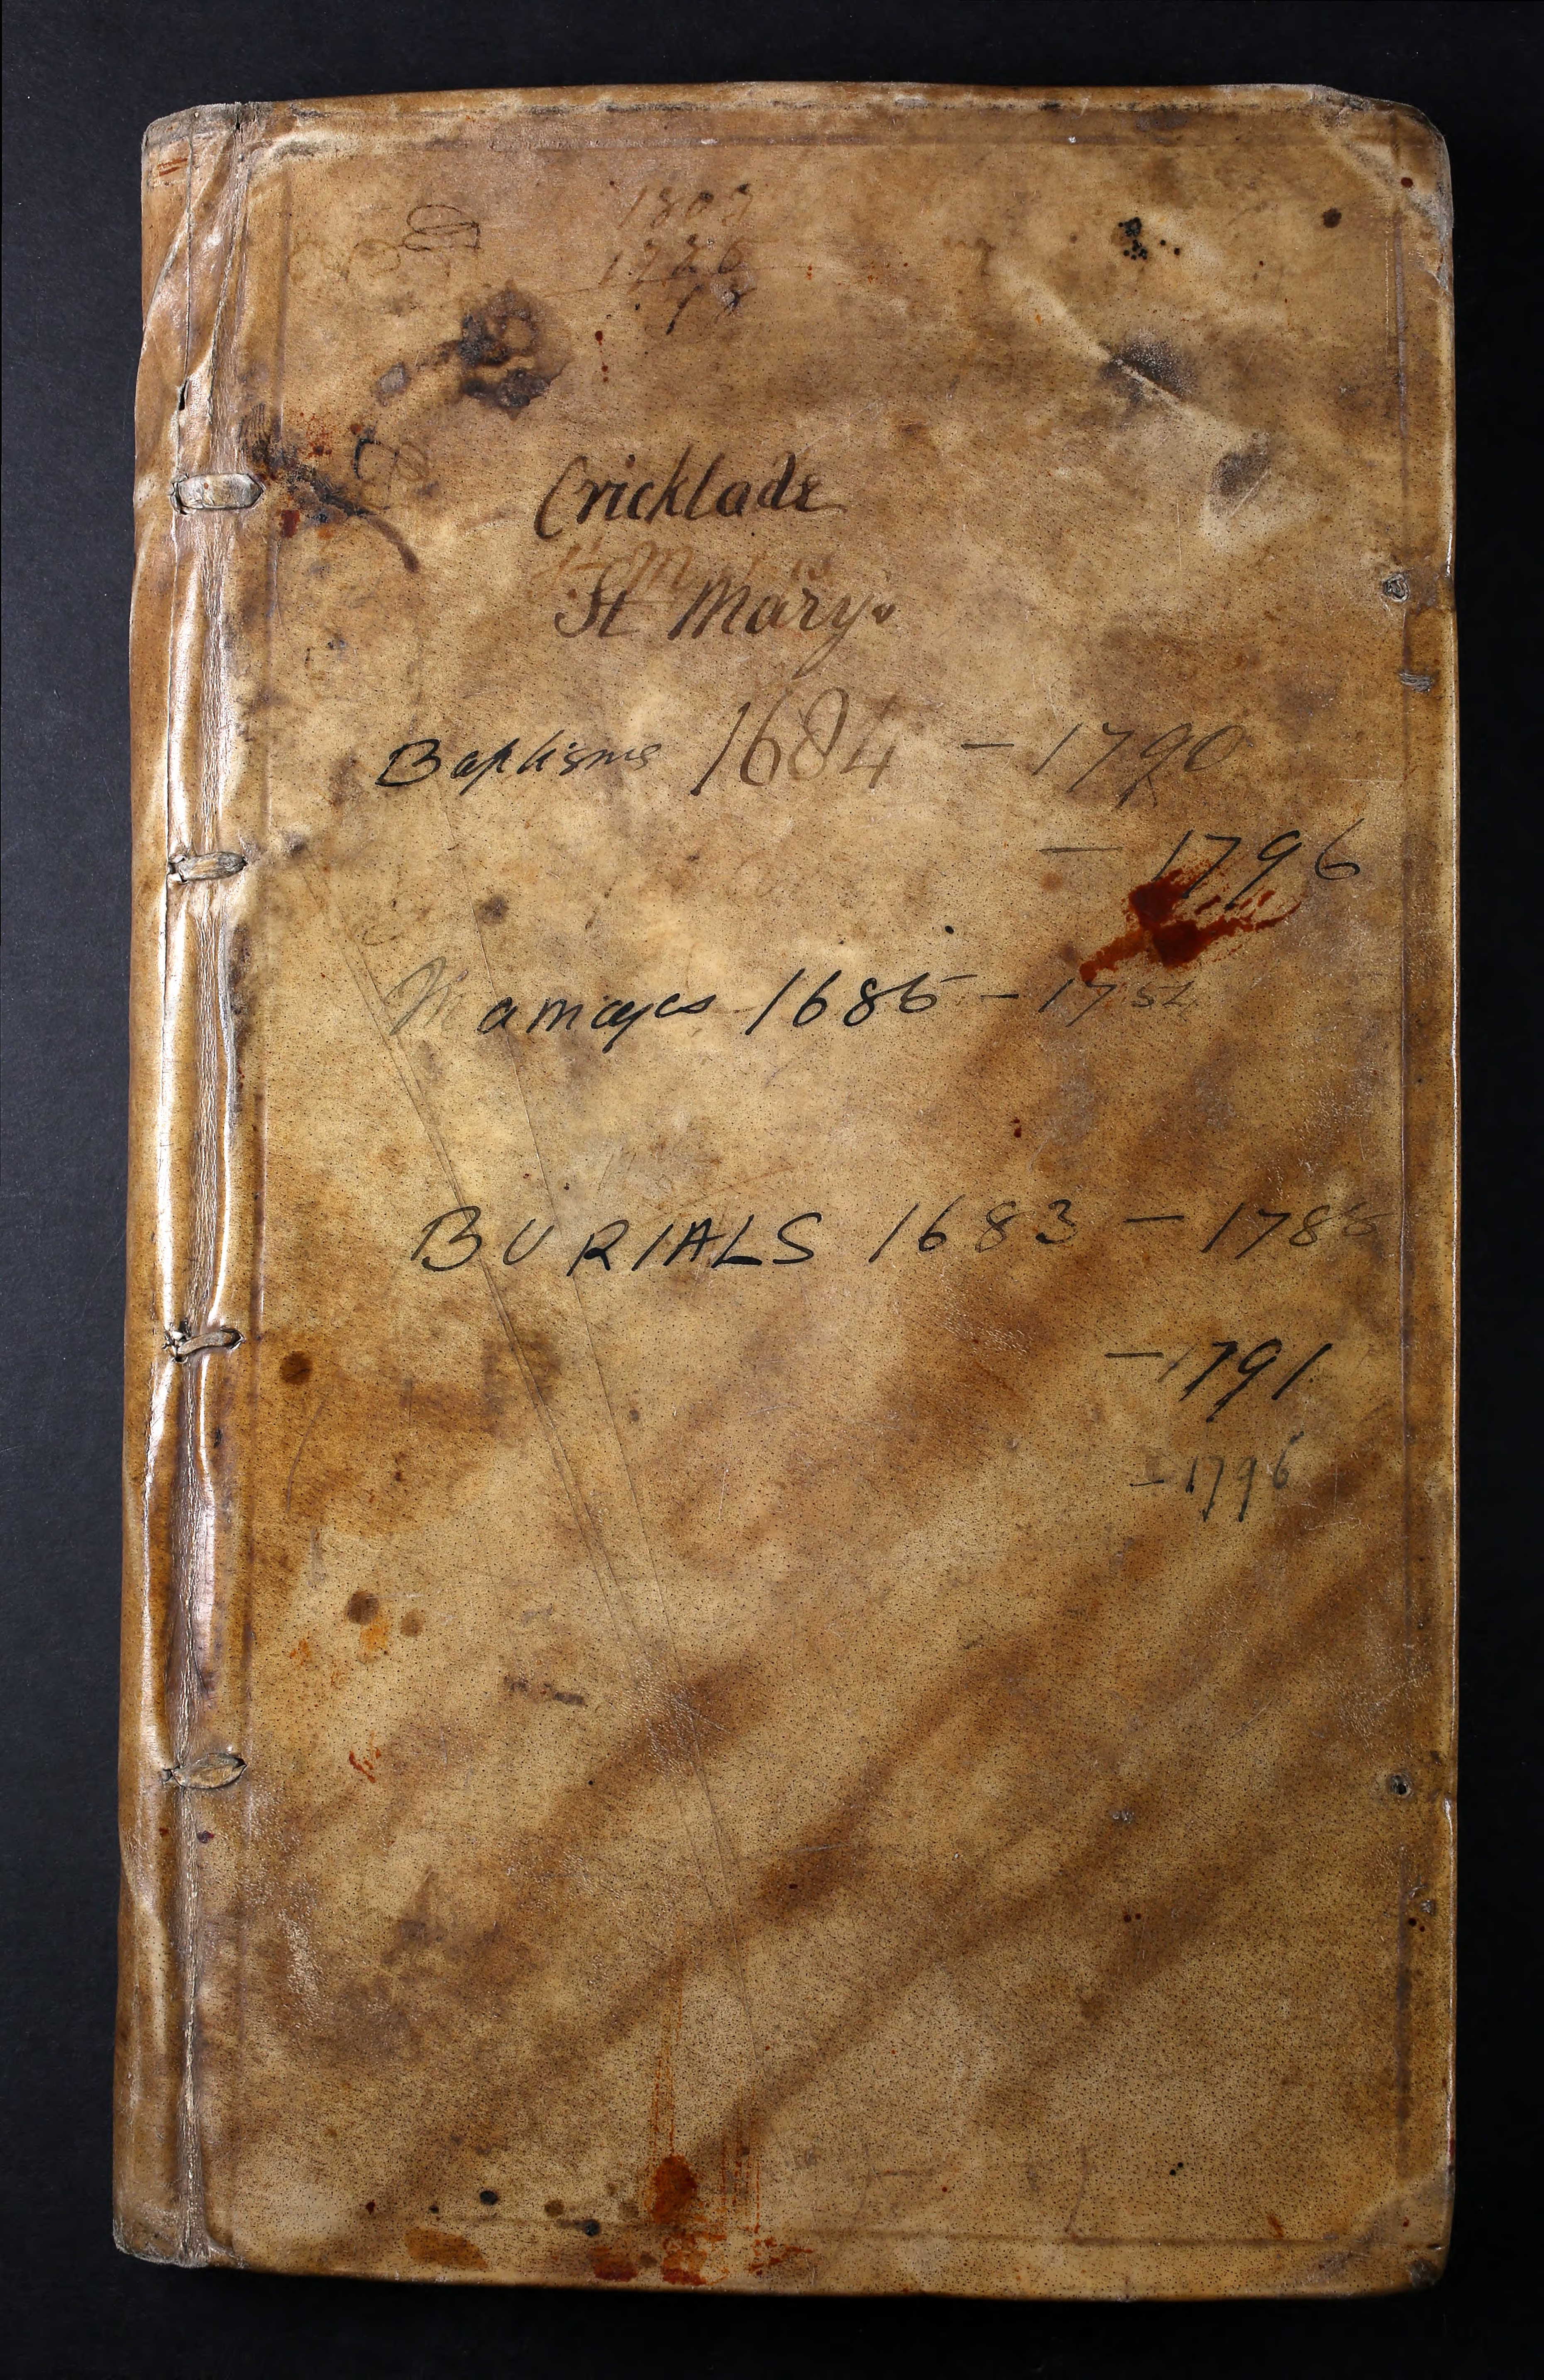 1803
1726
18
Cricklade
St Marys
Baptisms 1684 – 1790
– 1796
Marriages 1685 – 1754
BURIALS 1683 – 1788
– 1791
– 1796